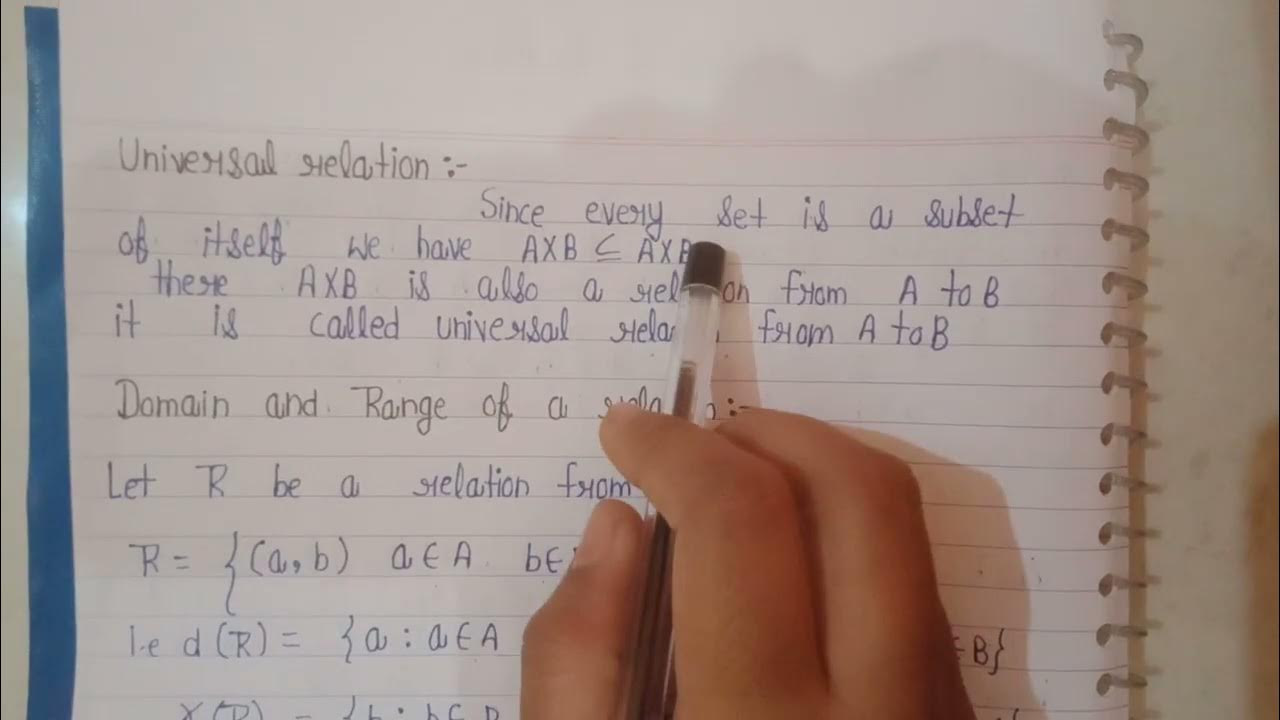 Universal relation :-
Since every set is a subset
of itself we have A×B ⊆ A×B
there A×B is also a relation from A to B
it is called universal from A to B
Domain and Range of a :-
Let R be a relation from
R = {(a, b) a∈A b∈
I.e d(R) = {a : a∈A ∈B}
(R) = {b : b∈B